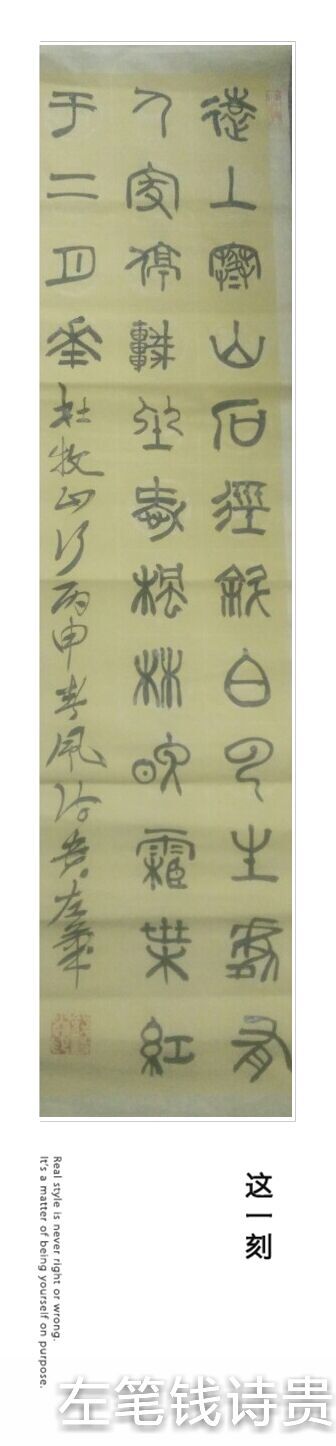 遠上寒山石徑斜白云生處有
人家停車坐愛楓林晚霜葉紅
于二月花 杜牧山行丙申春風诗贵左筆
这一刻
Real style is never right or wrong.
It's a matter of being yourself on purpose.
左笔钱诗贵